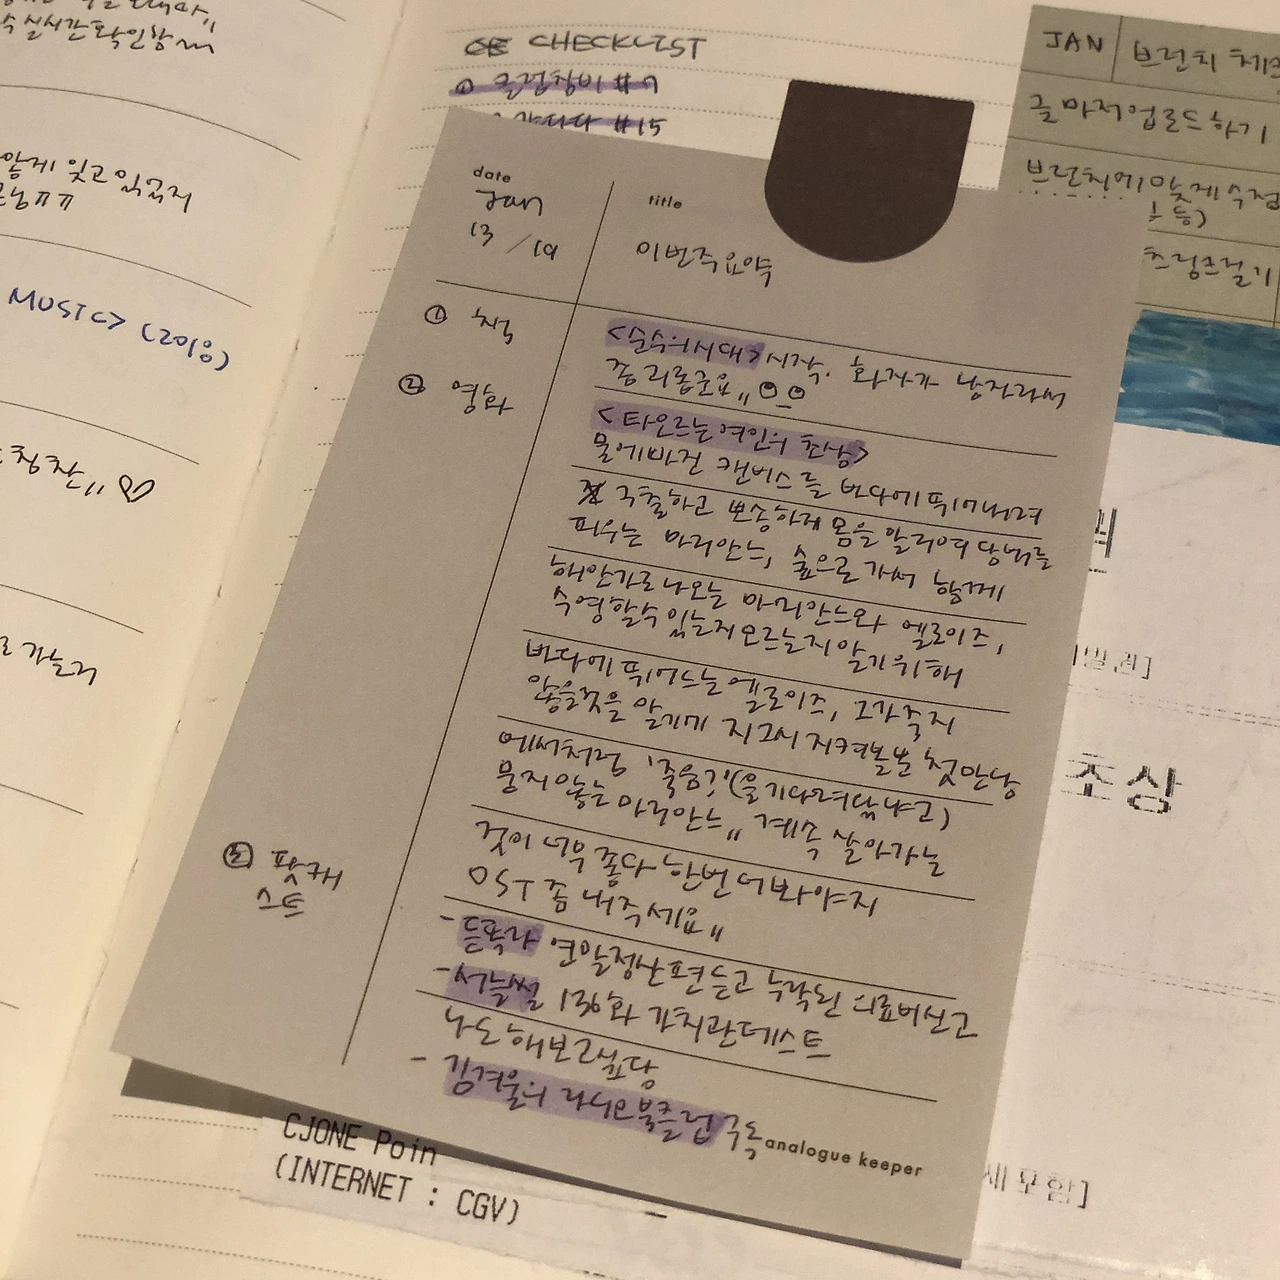 실시간확인함
않게 잊고 있었지
ㅠㅠ
MUSIC> (2018)
칭찬" ♡
가는거
CHECKLIST
① 클럽창비 #7
#15
JAN 브런치
글 마저 업로드하기
브런치에 맞게 수정
date
Jan
13 / 19
title
이번주요약
① 책
<순수의시대> 시작. 화자가 남자라서
좀 괴롭군요,,
② 영화
<타오르는 여인의 초상>
물에빠진 캔버스를 바다에 뛰어내려
구출하고 뽀송하게 몸을 말리며 담배를
피우는 마리안느, 숲으로 가서 함께
해안가로 나오는 마리안느와 엘로이즈,
수영할수 있는지 모르는지 알기위해
바다에 뛰어드는 엘로이즈, 그가 죽지
않을것을 알기에 지그시 지켜볼뿐 첫만남
에서처럼 '죽음?'(을 기다려왔냐고)
묻지않는 마리안느,, 계속 살아가는
것이 너무 좋다 한번 더봐야지
OST 좀 내주세요,,
③ 팟캐
스트
- 듣똑라 연말정산편 듣고 누락된 의료비신고
- 서늘썰 136화 가치관테스트
나도해보고싶당
- 김겨울의 라디오북클럽 구독
analogue keeper
CJONE Poin
(INTERNET : CGV)
초상
세 포함]